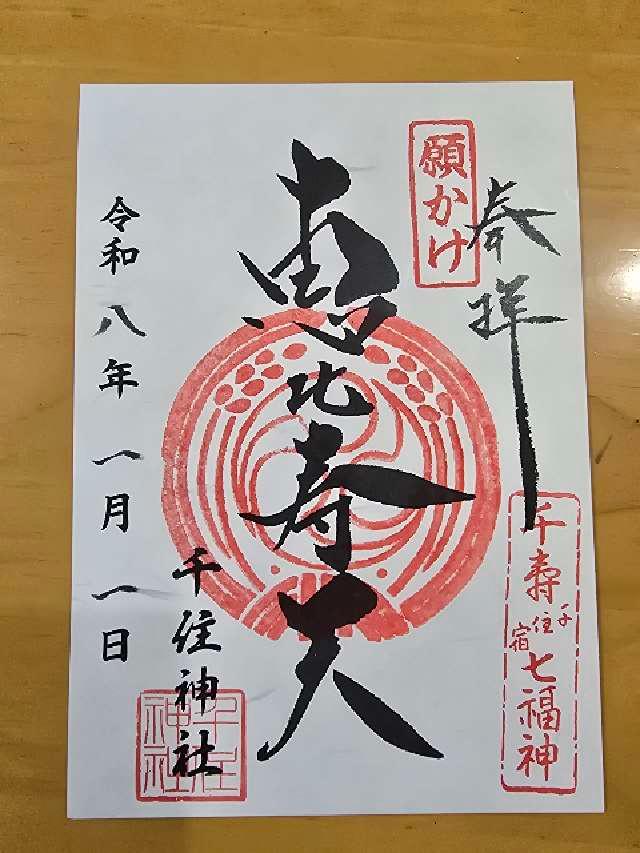 奉拝
願かけ
千壽七福神
千住宿
恵比寿天
千住神社
千住神社
令和八年一月一日